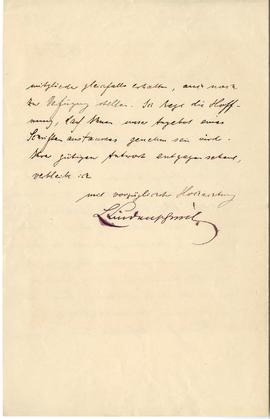 mitglieder gleichfalls erhalten, auch noch
zur Verfügung stellen. Ich hege die Hoff-
nung, daß Ihnen unser Angebot eines
Schriftenaustausches genehm sein wird.
Ihrer gütigen Antwort entgegensehend,
verbleibe ich
mit vorzüglicher Hochachtung
LLindenschmit